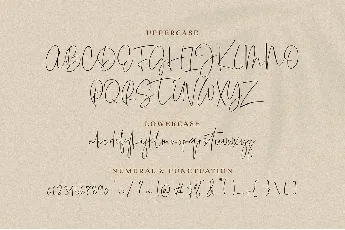 UPPERCASE
ABCDEFGHIJKLMNO
PQRSTUVWXYZ
LOWERCASE
abcdefghijklmnopqrstuvwxyz
NUMERAL & PUNCTUATION